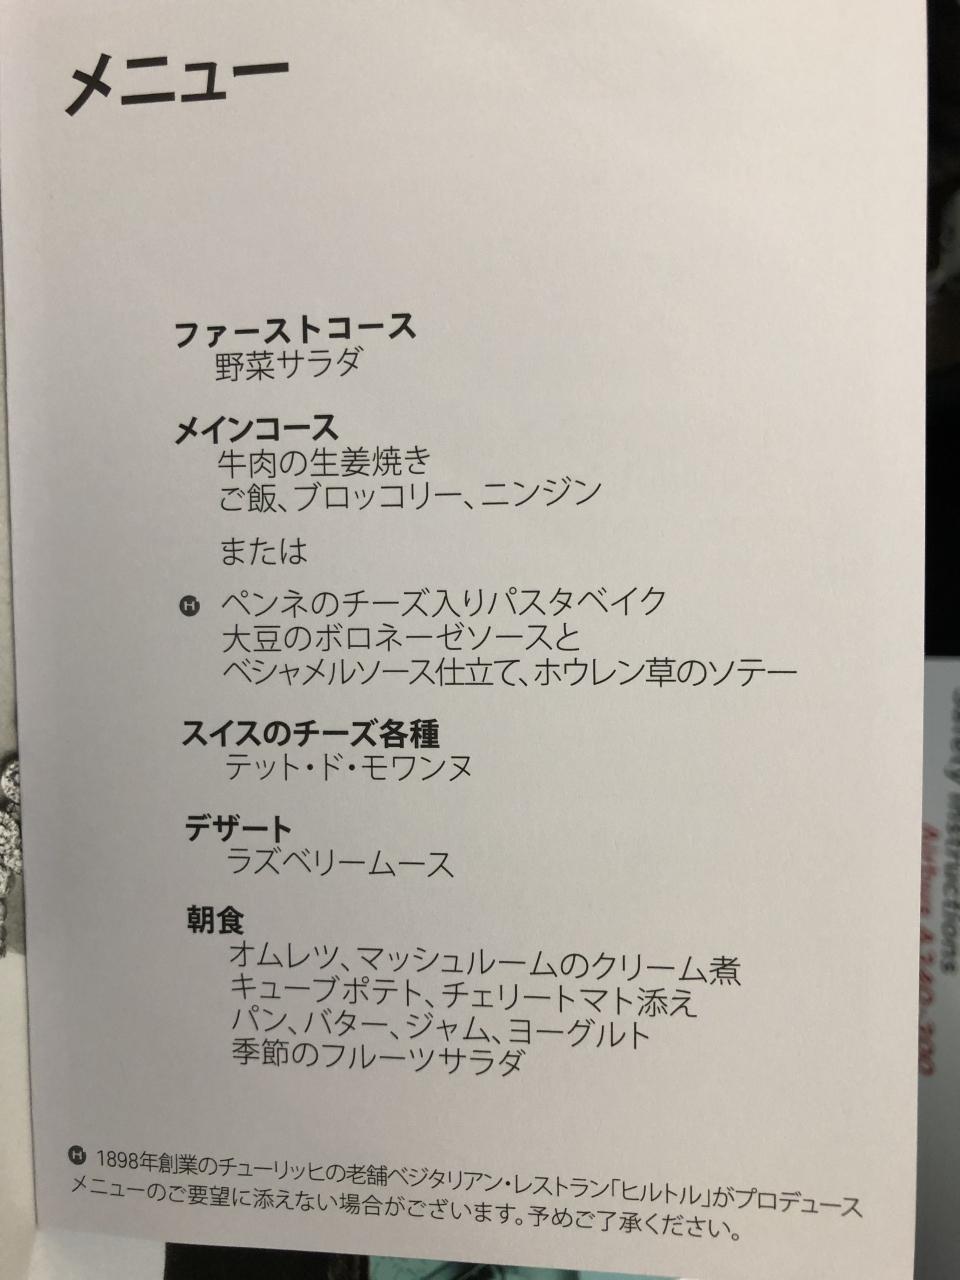 メニュー
ファーストコース
野菜サラダ
メインコース
牛肉の生姜焼き
ご飯、ブロッコリー、ニンジン
または
H ペンネのチーズ入りパスタベイク
大豆のボロネーゼソースと
ベシャメルソース仕立て、ホウレン草のソテー
スイスのチーズ各種
テット・ド・モワンヌ
デザート
ラズベリームース
朝食
オムレツ、マッシュルームのクリーム煮
キューブポテト、チェリートマト添え
パン、バター、ジャム、ヨーグルト
季節のフルーツサラダ
H 1898年創業のチューリッヒの老舗ベジタリアン・レストラン「ヒルトル」がプロデュース
メニューのご要望に添えない場合がございます。予めご了承ください。
Safety Instructions
Airbus A340-300